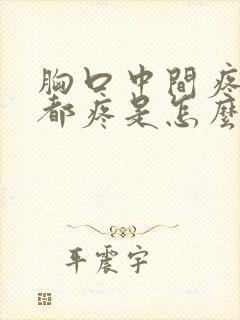 胸口中間疼
都疼是怎麼
平震宇